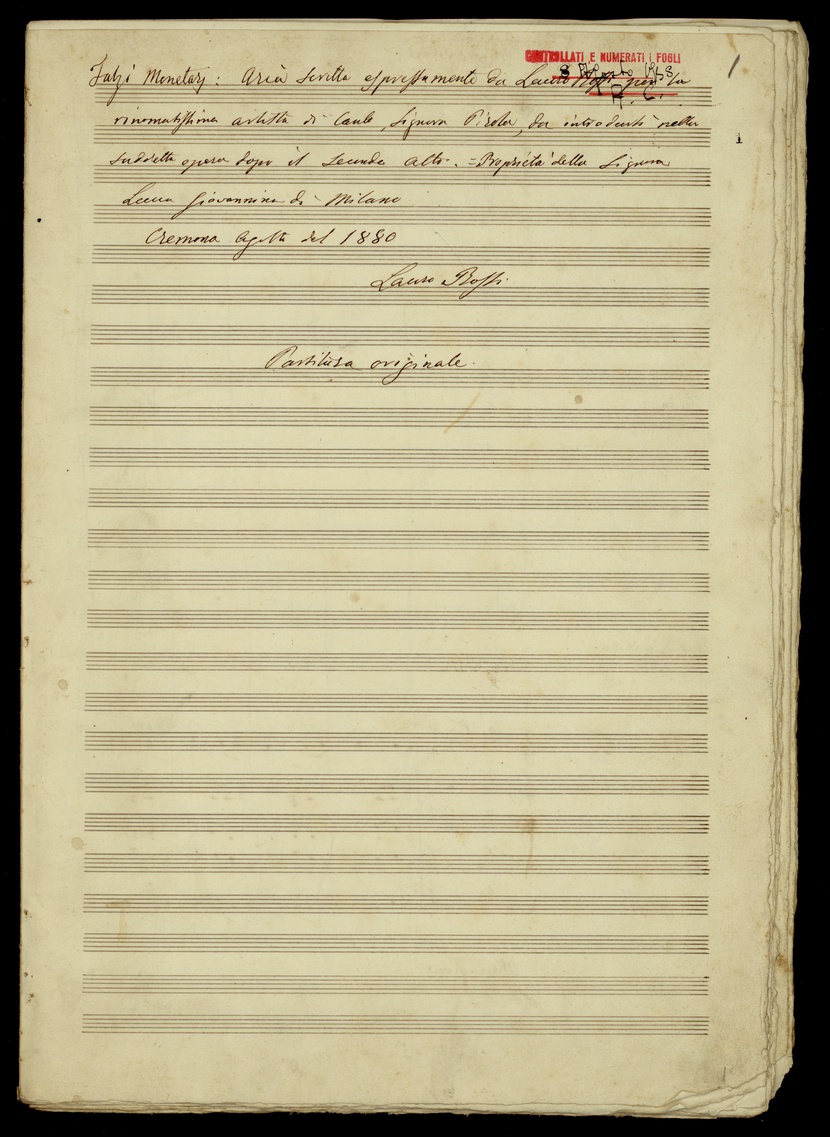 CONTROLLATI E NUMERATI I FOGLI
1
Falsi Monetarj: Aria scritta espressamente da Lauro Rossi per la
rinomatissima artista di Canto, Signora Pirola, da introdursi nella
suddetta opera dopo il secondo atto. = Proprietà della Signora
Lucca Giovannina di Milano
1
Cremona Agosto del 1880
Lauro Rossi
Partitura originale.